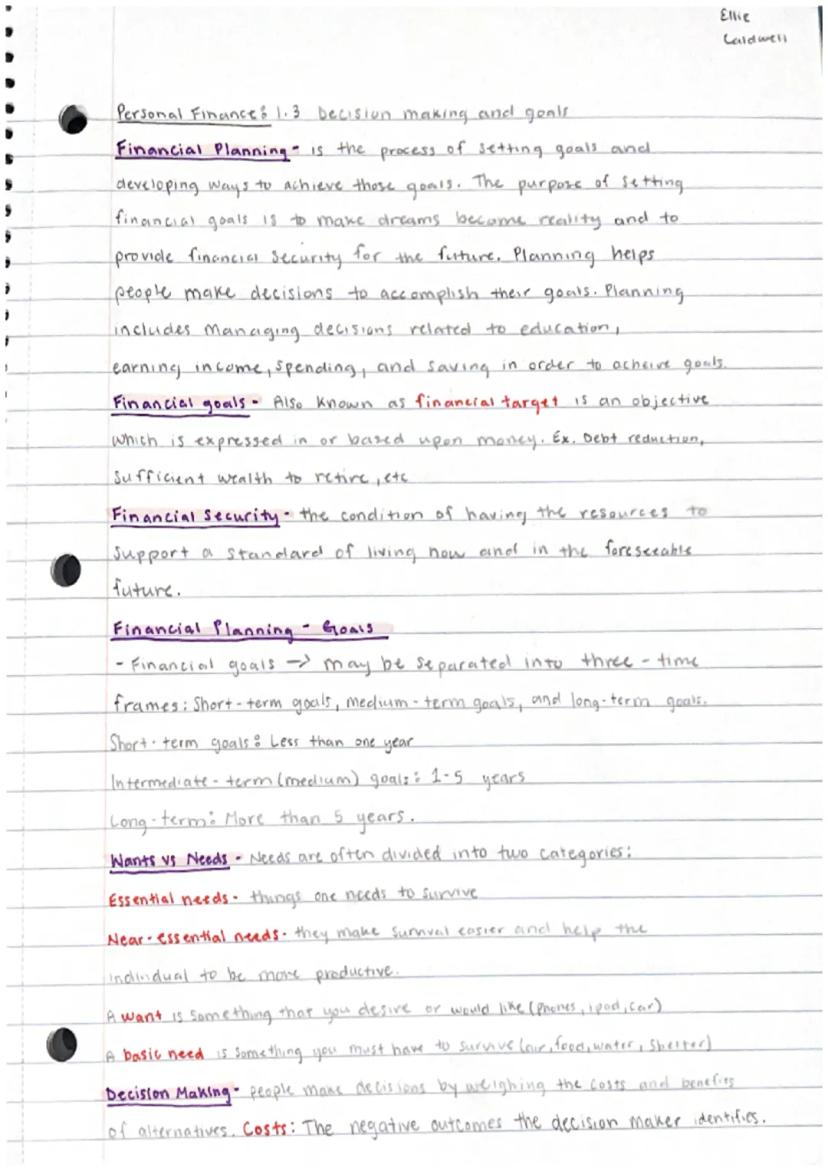 Ellie
Caldwell
Personal Finance: 1.3 Decision making and goals
Financial Planning - is the process of setting goals and
developing ways to achieve those goals. The purpose of setting
financial goals is to make dreams become reality and to
provide financial security for the future. Planning helps
people make decisions to accomplish their goals. Planning
includes managing decisions related to education,
earning income, spending, and saving in order to acheive goals.
Financial goals - Also known as financial target is an objective
which is expressed in or based upon money. Ex. Debt reduction,
sufficient wealth to retire, etc
Financial Security - the condition of having the resources to
support a standard of living now and in the foreseeable
future.
Financial Planning - Goals
- Financial goals → may be separated into three - time
frames: Short-term goals, medium-term goals, and long-term goals.
Short-term goals: Less than one year
Intermediate-term (medium) goals: 1-5 years
Long-term: More than 5 years.
Wants vs Needs - Needs are often divided into two categories:
Essential needs - things one needs to survive
Near-essential needs - they make survival easier and help the
individual to be more productive.
A want is something that you desire or would like (phones, ipod, car)
A basic need is something you must have to survive (air, food, water, shelter)
Decision Making - people make decisions by weighing the costs and benefits
of alternatives. Costs: The negative outcomes the decision maker identifies.